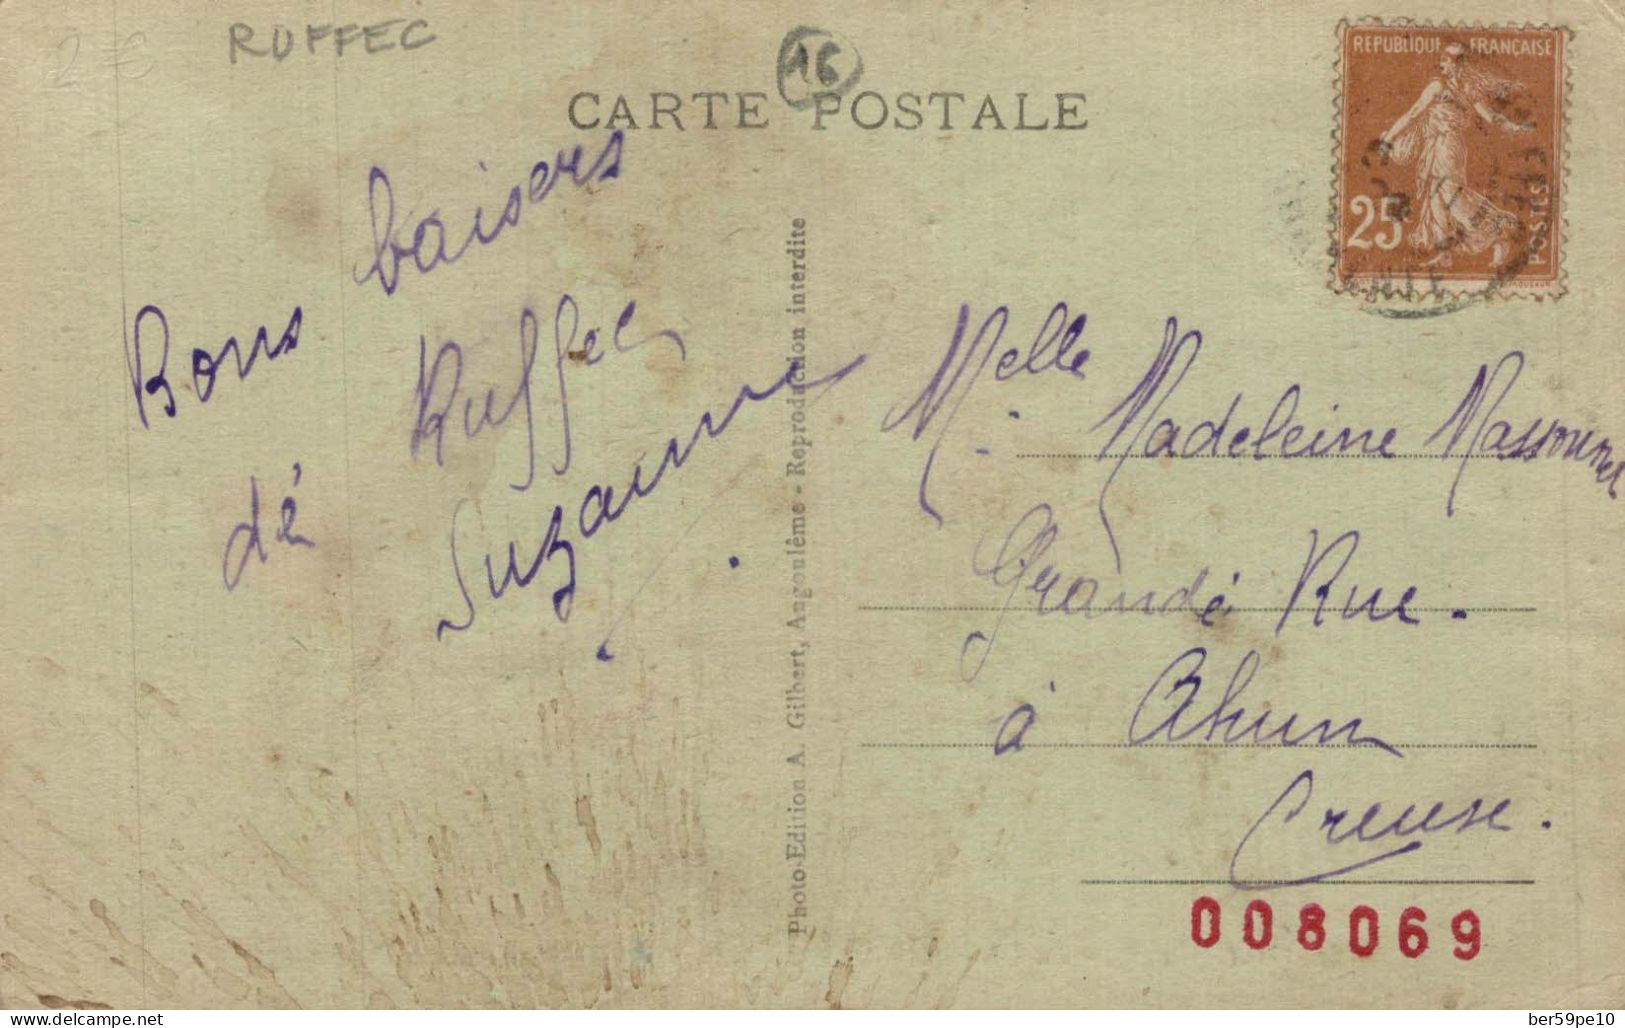 2 €
RUFFEC
16
CARTE POSTALE
REPUBLIQUE FRANÇAISE
25
POSTES
Bons baisers
dé Ruffec
Suzanne
Photo-Edition A. Gilbert, Angoulême - Reproduction interdite
Melle Madeleine Massounet
Grandé Rue.
à Ahun
Creuse.
008069
delcampe.net
ber59pe10